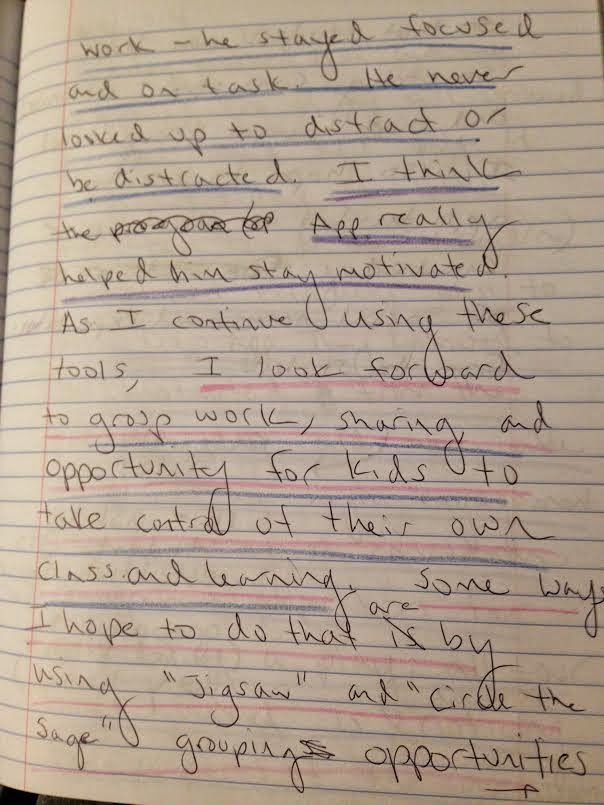 work – he stayed focused
and on task. He never
looked up to distract or
be distracted. I think
the App really
helped him stay motivated.
As I continue using these
tools, I look forward
to group work, sharing, and
opportunity for kids to
take control of their own
class and learning. Some ways
are
I hope to do that is by
using "Jigsaw" and "Circle the
Sage" grouping opportunities